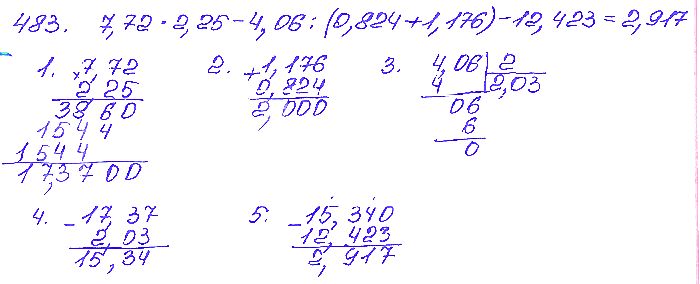 483. 7,72 · 2,25 - 4,06 : (0,824 + 1,176) - 12,423 = 2,917
1. × 7,72
2,25
3860
1544
1544
17,3700
2. + 1,176
0,824
2,000
3. 4,06 | 2
4 | 2,03
06
6
0
4. - 17,37
2,03
15,34
5. - 15,340
12,423
2,917